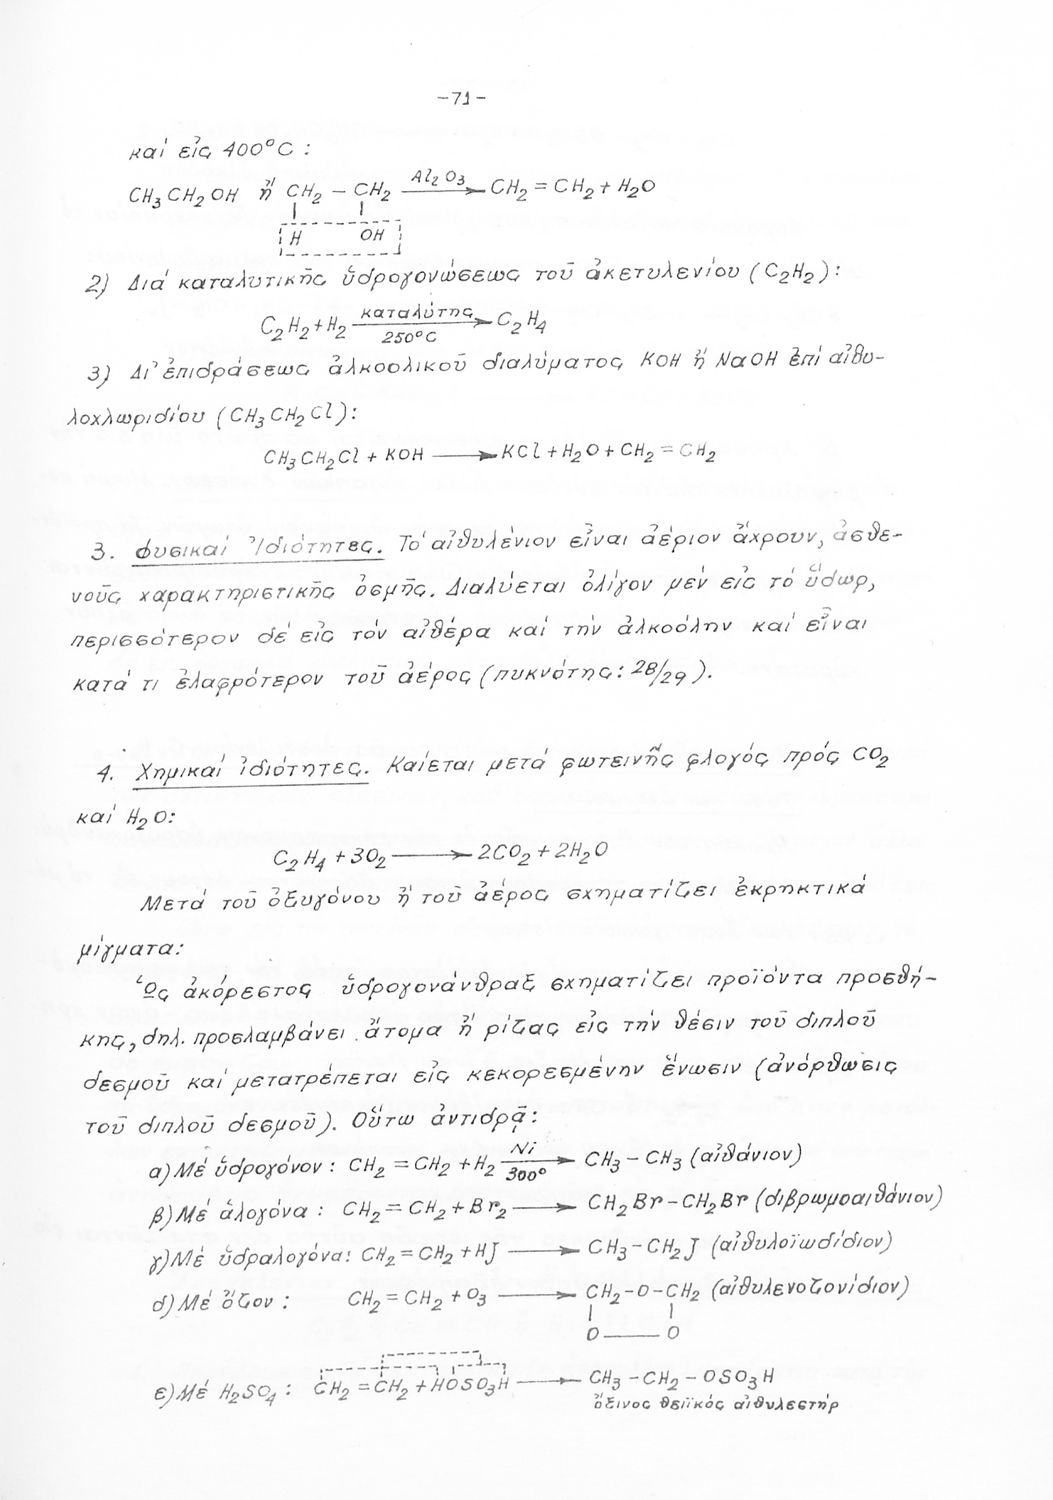 -71-
καί εἰς 400°C :
CH₃CH₂OH ἤ CH₂ - CH₂ Al₂O₃ → CH₂ = CH₂ + H₂O
H OH
2) Διά καταλυτικῆς ὑδρογονώσεως τοῦ ἀκετυλενίου (C₂H₂):
C₂H₂ + H₂ καταλύτης → C₂H₄
250°C
3) Δι' ἐπιδράσεως ἀλκοολικοῦ διαλύματος KOH ἤ NaOH ἐπί αἰθυ-
λοχλωριδίου (CH₃CH₂Cl):
CH₃CH₂Cl + KOH → KCl + H₂O + CH₂ = CH₂
3. Φυσικαί Ἰδιότητες. Τό αἰθυλένιον εἶναι ἀέριον ἄχρουν, ἀσθε-
νοῦς χαρακτηριστικῆς ὀσμῆς. Διαλύεται ὀλίγον μέν εἰς τό ὕδωρ,
περισσότερον δέ εἰς τόν αἰθέρα καί τήν ἀλκοόλην καί εἶναι
κατά τι ἐλαφρότερον τοῦ ἀέρος (πυκνότης: 28/29).
4. Χημικαί ἰδιότητες. Καίεται μετά φωτεινῆς φλογός πρός CO₂
καί H₂O:
C₂H₄ + 3O₂ → 2CO₂ + 2H₂O
Μετά τοῦ ὀξυγόνου ἤ τοῦ ἀέρος σχηματίζει ἐκρηκτικά
μίγματα:
Ὡς ἀκόρεστος ὑδρογονάνθραξ σχηματίζει προϊόντα προσθή-
κης, δηλ. προσλαμβάνει ἄτομα ἤ ρίζας εἰς τήν θέσιν τοῦ διπλοῦ
δεσμοῦ καί μετατρέπεται εἰς κεκορεσμένην ἕνωσιν (ἀνόρθωσις
τοῦ διπλοῦ δεσμοῦ). Οὕτω ἀντιδρᾷ:
α) Μέ ὑδρογόνον : CH₂ = CH₂ + H₂ Ni → CH₃ - CH₃ (αἰθάνιον)
300°
β) Μέ ἁλογόνα : CH₂ = CH₂ + Br₂ → CH₂Br - CH₂Br (διβρωμοαιθάνιον)
γ) Μέ ὑδραλογόνα: CH₂ = CH₂ + HJ → CH₃ - CH₂J (αἰθυλοϊωδίδιον)
δ) Μέ ὄζον : CH₂ = CH₂ + O₃ → CH₂-O-CH₂ (αἰθυλενοζονίδιον)
O — O
ε) Μέ H₂SO₄ : CH₂ = CH₂ + HOSO₃H → CH₃ - CH₂ - OSO₃H
ὄξινος θειϊκός αἰθυλεστήρ